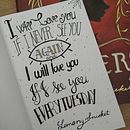 I will Love you
IF I NEVER SEE YOU
AGAIN
I will love you
If I SEE YOU
EVERY TUESDAY
Lemony Snicket
ER